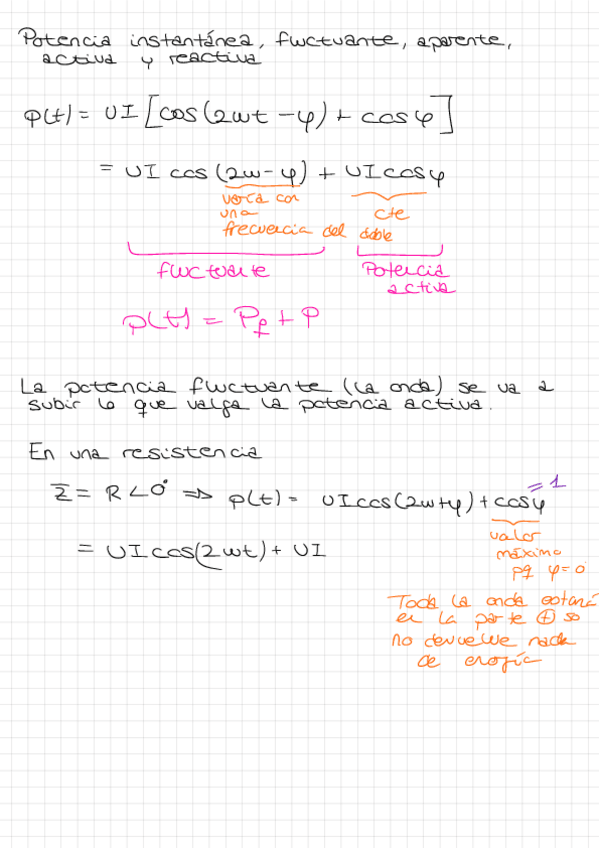 Potencia instantánea, fluctuante, aparente,
activa y reactiva
p(t) = UI [cos(2wt - φ) + cos φ]
= UI cos (2w - φ) + UI cos φ
varía con
una
frecuencia del doble
cte
fluctuante
Potencia
activa
p(t) = Pf + P
La potencia fluctuante (la onda) se va a
subir lo que valga la potencia activa.
En una resistencia
Z̅ = R∠0° => p(t) = UI cos(2w+φ) + cos φ
= 1
= UI cos(2wt) + UI
valor
máximo
pq φ = 0
Toda la onda estará
en la parte ⊕ so
no devuelve nada
de energía